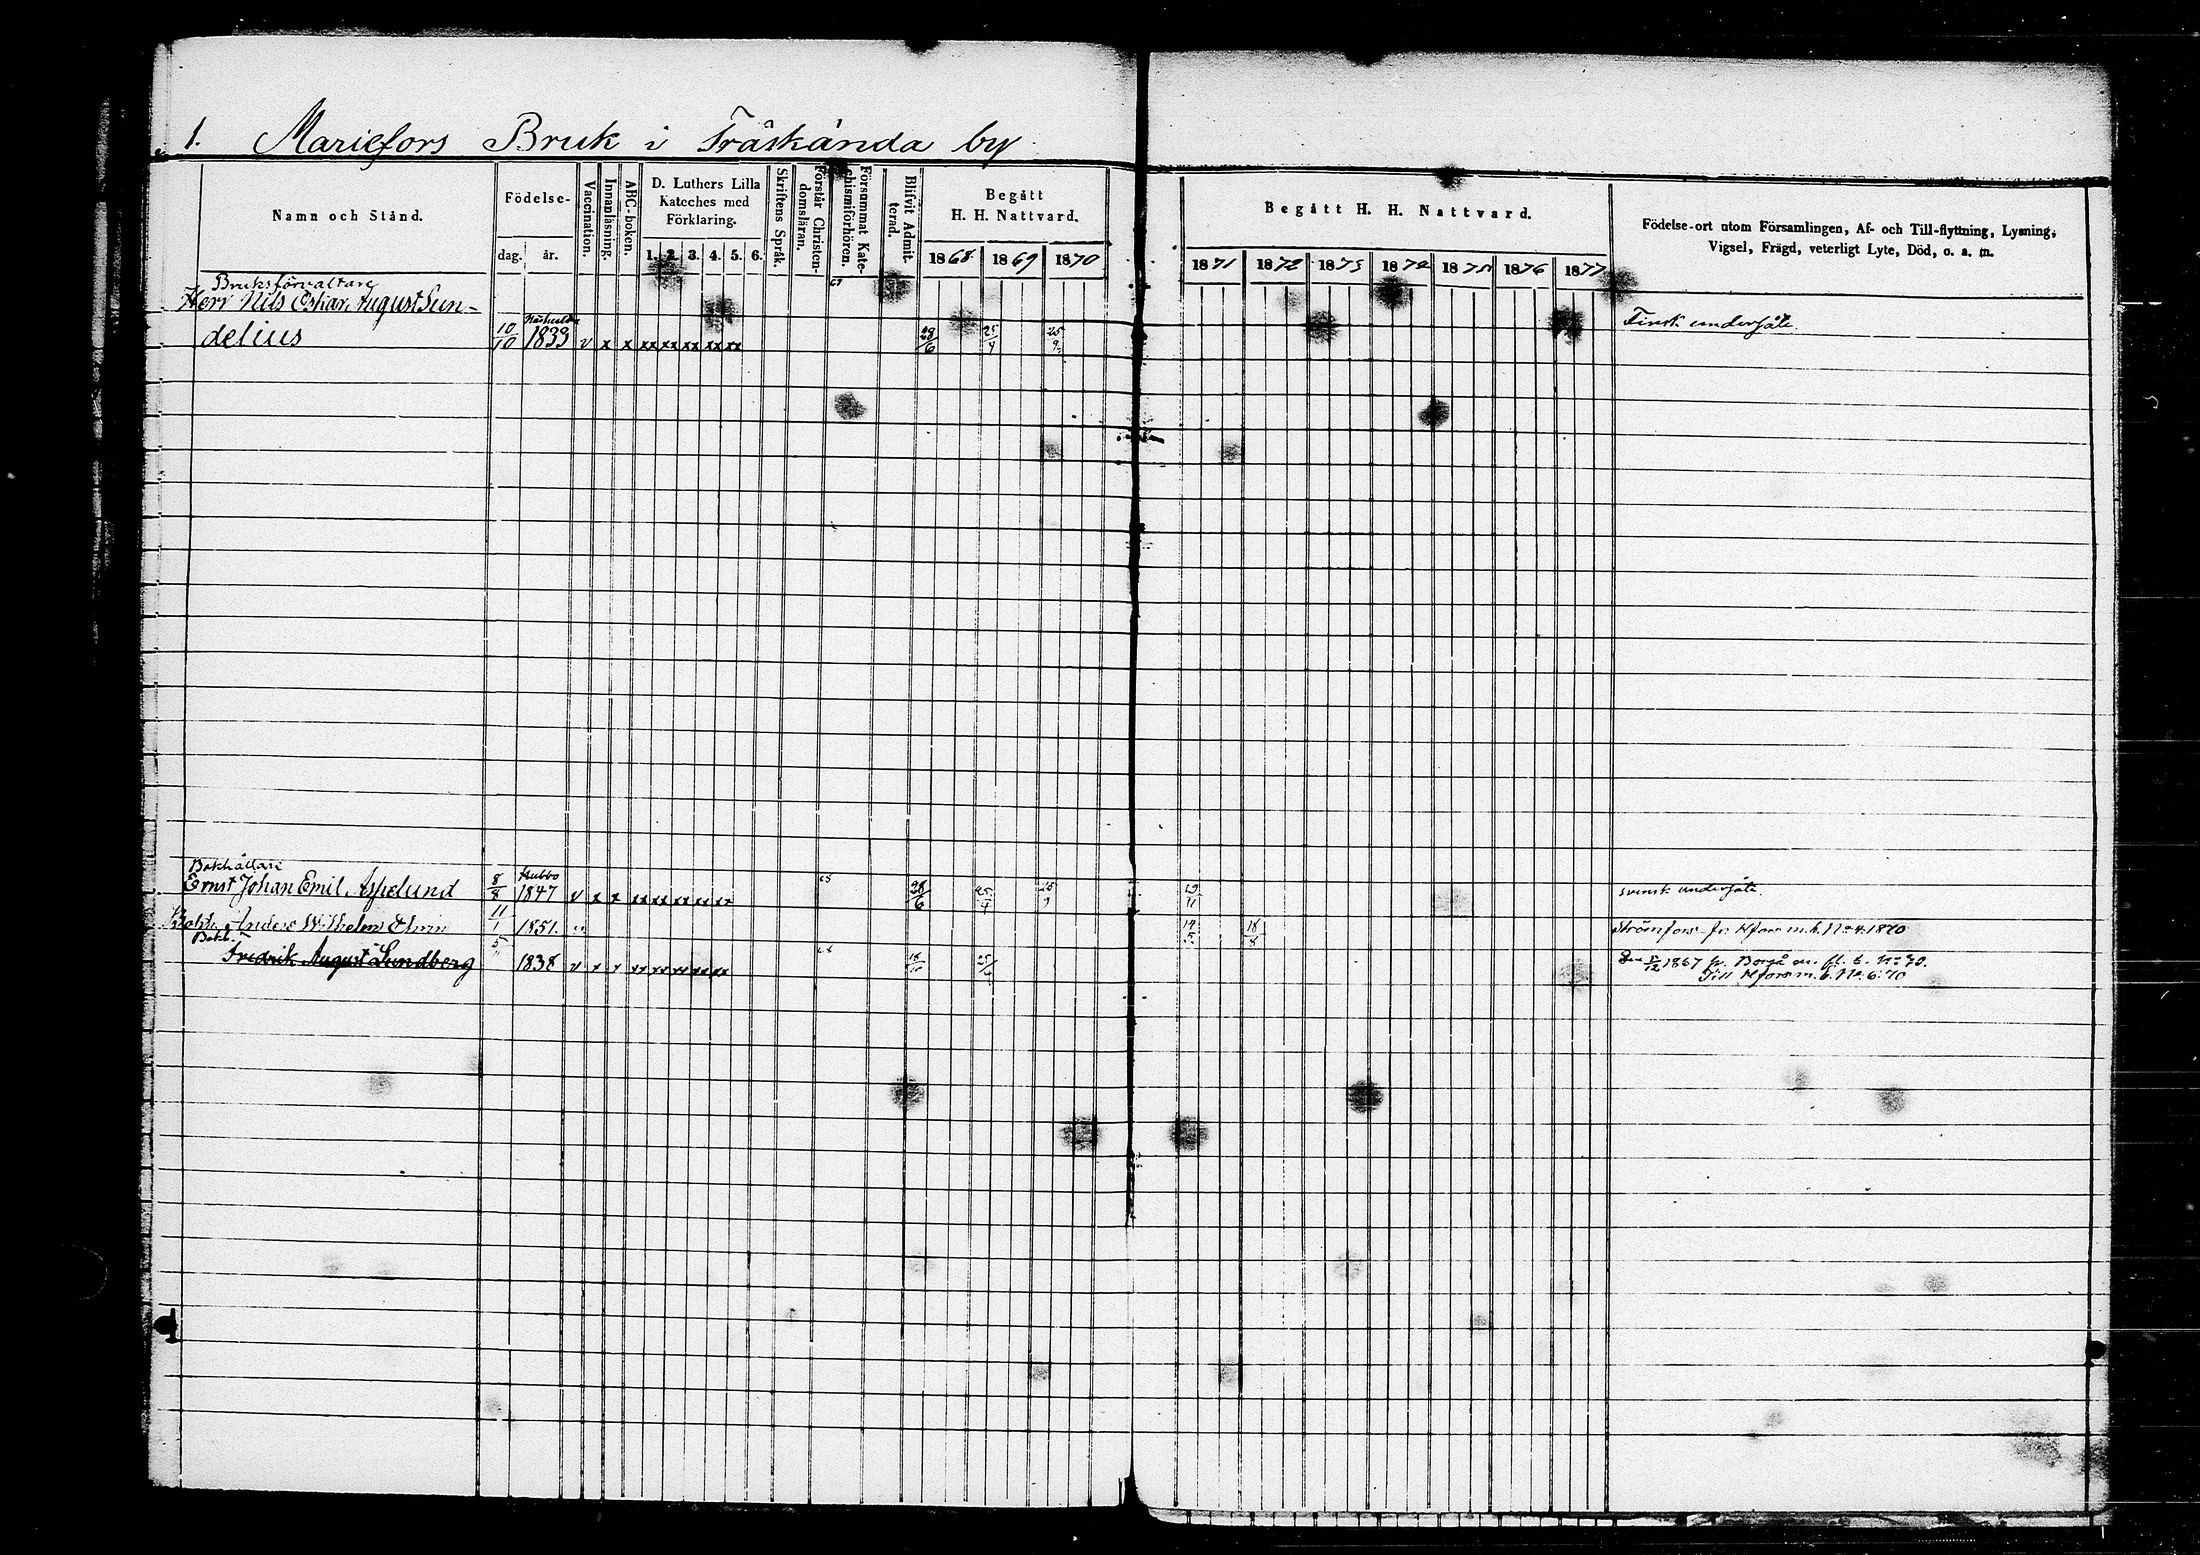 1. Mariefors Bruk i Träskända by
Namn och Stånd.
Födelse-
dag. år.
Vaccination.
Innanläsning.
ABC-boken.
D. Luthers Lilla
Kateches med
Förklaring.
1. 2. 3. 4. 5. 6.
Skriftens Språk.
Förstår Christen-
domsläran.
Försummat Kate-
chismiförhören.
Blifvit Admit-
terad.
Begått
H. H. Nattvard.
1868 1869 1870
Begått H. H. Nattvard.
1871 1872 1873 1874 1875 1876 1877
Födelse-ort utom Församlingen, Af- och Till-flyttning, Lysning,
Vigsel, Frägd, veterligt Lyte, Död, o. a. m.
Bruksförvaltare
Herr Nils Oskar August Sun-
delius 10/10 1839 v x x xx xx xx xx xx 28/6 25/4 25/9 Finsk undersåte.
Bokhållare
Ernst Johan Emil Aspelund 8/8 1847 v x x xx xx xx xx xx 28/6 25/4 25/9 svensk undersåte.
Bokh. Anders Wilhelm 11/1 1851. 14/5 18/8 Strömfors fr. Hfors m. b. No 4. 1870
Bokh.
Fredrik August Lundberg 5/" 1838 v x x xx xx xx xx xx 25/4 1867 fr. Borgå
Till Hfors m. b. No 6. 70